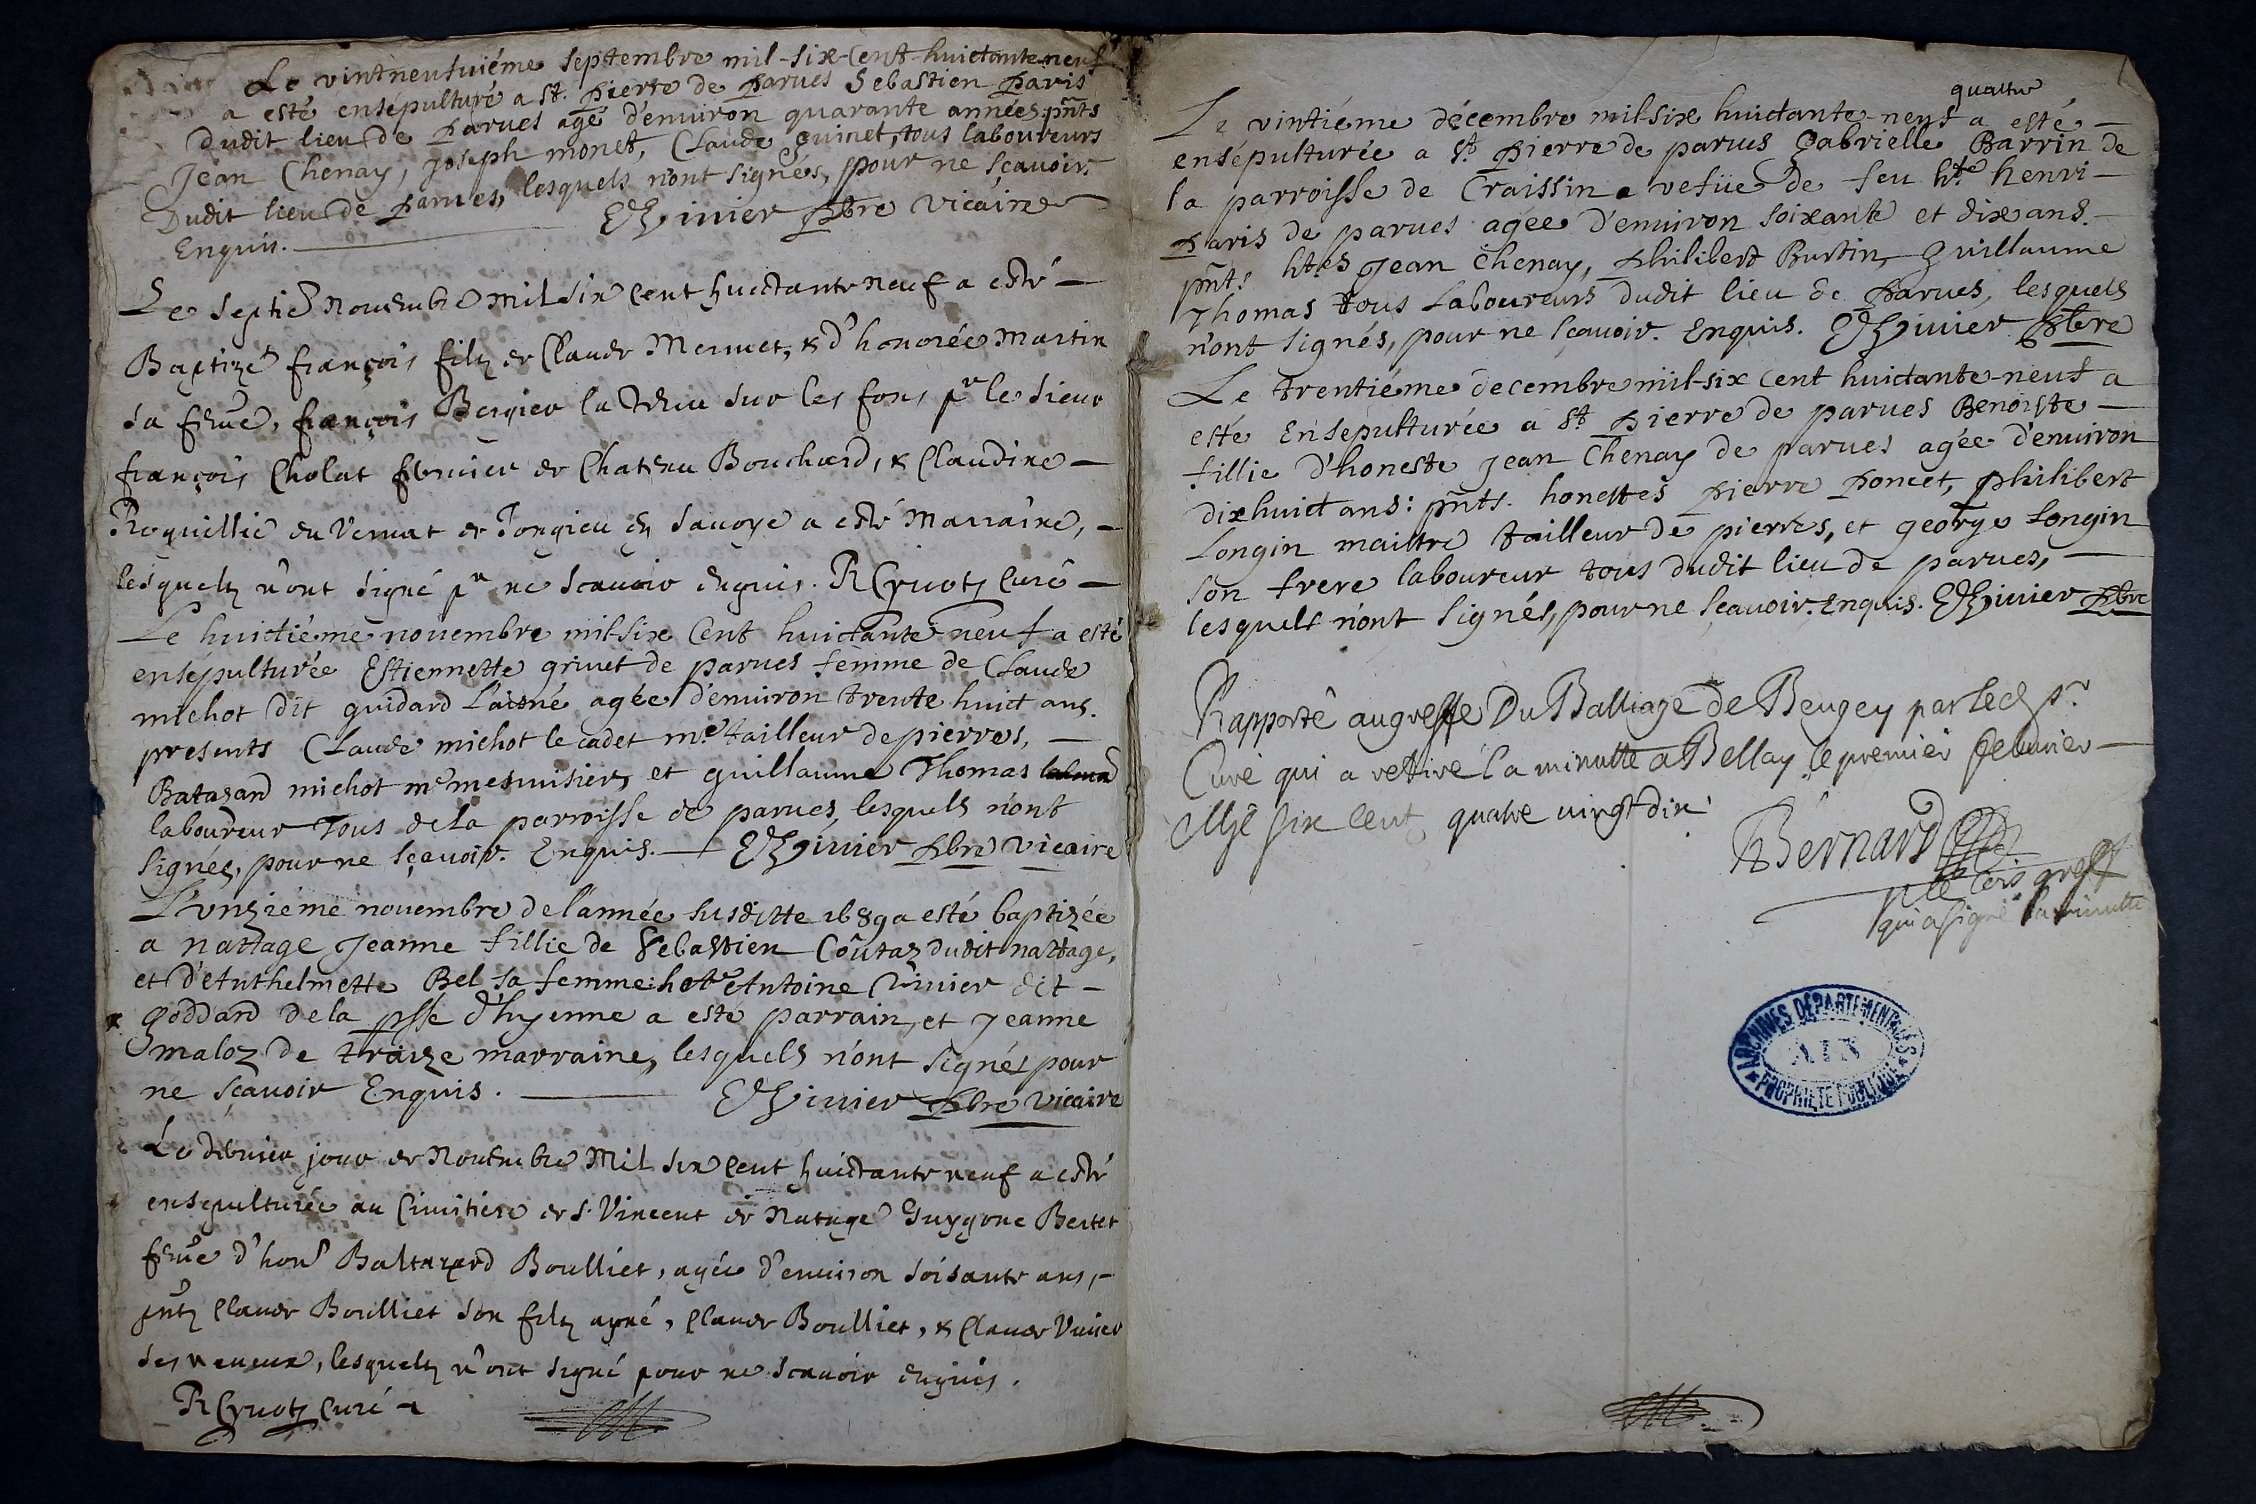 Le vintneufuiéme septembre mil-six-Cent-huictante neuf
a esté ensépulturé a St. pierre de parues Sebastien paris
dudit lieu de parues agé d'enuiron quarante années pñts
Jean Chenay, Joseph monet, Claude guinet, tous laboureurs
Dudit lieu de parues, lesquels n'ont signés, pour ne sçauoir.
Enquis. Viuier pbre vicaire
Le septie Nouembre Mil six Cent huictante neuf a esté
Baptizé françois filz de Claude Mermet, & d'honorée Martin
sa feme, françois Bergier la tenu sur les fons pr le sieur
françois Cholat fermier de Chateau Bouchard, & Claudine
Roquillie du Vernat de Jongieu en Sauoye a esté Marraine,
lesquelz n'ont signé pr ne scauoir enquis. curé
Le huictiéme nouembre mil-six Cent huictante-neuf a esté
ensépulturée Estiennette griuet de parues femme de Claude
michot dit guidard l'aisné agée d'enuiron trente huict ans.
presents Claude michot le cadet me tailleur de pierres,
Batazard michot me menuisier, et guillaume Thomas
laboureur Tous de la parroisse de parues, lesquels n'ont
signés, pour ne sçauoir. Enquis. Viuier pbre vicaire
L'unziéme nouembre de l'année susditte 1689 a esté baptizée
a nattage Jeanne fillie de Sebastien Coûtaz dudit nattage,
et d'Anthelmette Bel sa femme: hote Antoine Viuier dit
goddard de la psse d'hyenne a esté parrain, et Jeanne
maloz de traize marraine, lesquels n'ont signés pour
ne sçauoir Enquis. Viuier pbre vicaire
Le dernier jour de Nouembre Mil six Cent huictante neuf a esté
ensepulturée au Cimitiere de St Vincent de Natage Guygone Bertet
feme d'hone Baltazard Boulliet, agée d'enuiron soisante ans,
pntz Claude Boulliet son filz ayné, Claude Boulliet, & Claude Viuier
ses neueux, lesquelz n'ont signé pour ne scauoir enquis.
curé
quattre
Le vintiéme décembre mil-six huictante-neuf a esté
ensépulturée a St. pierre de parues Gabrielle Barrin de
la parroisse de Craissin vefue de feu hte henri
paris de parues agée d'enuiron soixante et dix ans.
pñts htes Jean Chenay, philibert Burtin, Guillaume
Thomas tous Laboureurs dudit lieu de parues, lesquels
n'ont signés, pour ne sçauoir. Enquis. Viuier pbre
Le trentiéme decembre mil-six Cent huictante-neuf a
esté Ensépulturée a St pierre de parues Benoiste
fillie d'honeste Jean Chenay de parues agée d'enuiron
dix huict ans: pñts. honestes pierre poncet, philibert
Longin maitre tailleur de pierres, et george Longin
son frere laboureur tous dudit lieu de parues,
lesquels n'ont signés, pour ne sçauoir. Enquis. Viuier pbre
Rapporté au greffe Du Balliage de Beugey par led sr
Curé qui a rettiré la minutte a Bellay le premier feburier
Mil six cent quatre vingt dix
Bernard
greff
qui a signé la minutte
ARCHIVES DÉPARTEMENTALES
AIN
PROPRIÉTÉ PUBLIQUE